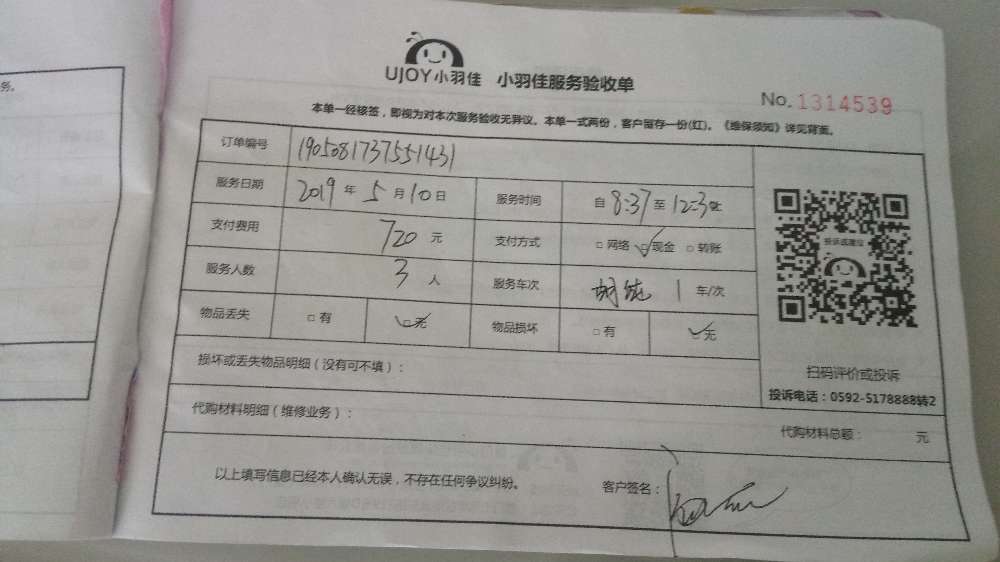 务。
UJOY小羽佳 小羽佳服务验收单
No. 1314539
本单一经核签，即视为对本次服务验收无异议。本单一式两份，客户留存一份(红)。《维保须知》详见背面。
订单编号 1905081737551431
服务日期 2019 年 5 月 10 日 服务时间 自 8:37 至 12:37
支付费用 720 元 支付方式 □ 网络 □ 现金 □ 转账
服务人数 3 人 服务车次 1 车/次
物品丢失 □ 有 □ 无 物品损坏 □ 有 □ 无
投诉或建议
损坏或丢失物品明细（没有可不填）：
扫码评价或投诉
投诉电话：0592-5178888转2
代购材料明细（维修业务）：
代购材料总额： 元
以上填写信息已经本人确认无误，不存在任何争议纠纷。 客户签名：